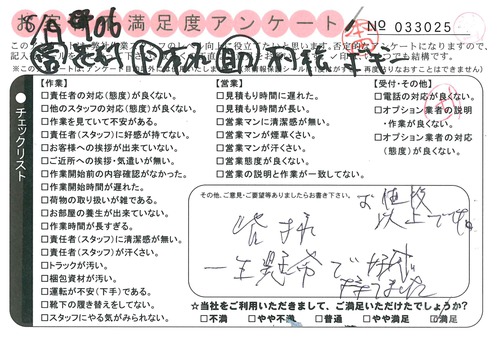 お客様満足度アンケート
No 033025
【作業】
□責任者の対応(態度)が良くない。
□他のスタッフの対応(態度)が良くない。
□作業を見ていて不安がある。
□責任者(スタッフ)に好感が持てない。
□お客様への挨拶が出来ていない。
□ご近所への挨拶・気遣いが無い。
□作業開始前の内容確認がなかった。
□作業開始時間が遅れた。
□荷物の取り扱いが雑である。
□お部屋の養生が出来ていない。
□作業時間が長すぎる。
□責任者(スタッフ)に清潔感が無い。
□責任者(スタッフ)が汗くさい。
□トラックが汚い。
□梱包資材が汚い。
□運転が不安(下手)である。
□靴下の履き替えをしてない。
□スタッフにやる気がみられない。
【営業】
□見積もり時間に遅れた。
□見積もり時間が長い。
□営業マンに清潔感が無い。
□営業マンが煙草くさい。
□営業マンが汗くさい。
□営業態度が良くない。
□営業の説明と作業が一致してない。
【受付・その他】
□電話の対応が良くない。
□オプション業者の説明
・作業が良くない。
□オプション業者の対応
(態度)が良くない。
チェックリスト
その他、ご意見・ご要望等ありましたらお書き下さい。
お値段
以上です。
皆様
一生懸命で好感
持てました
☆当社をご利用いただきまして、ご満足いただけたでしょうか?
□不満 □やや不満 □普通 □やや満足 □満足